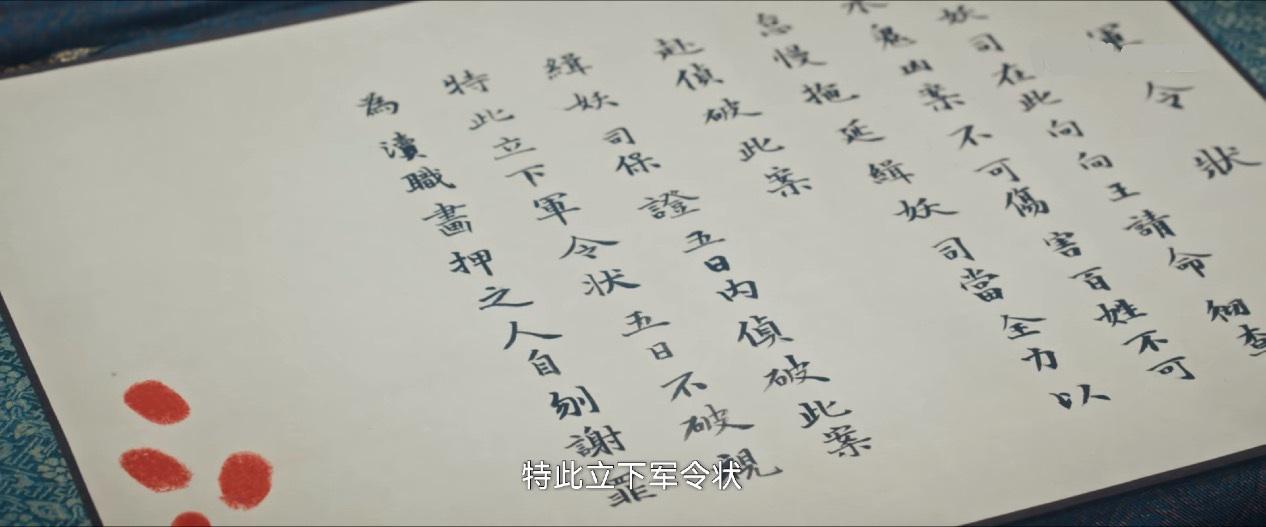 軍令狀
妖司在此向向王請命細查
水鬼凶案不可傷害百姓不可
怠慢拖延緝妖司當全力以
赴偵破此案
緝妖司保證五日內偵破此案
特此立下軍令狀五日不破視
為瀆職畫押之人自刎謝罪
特此立下军令状